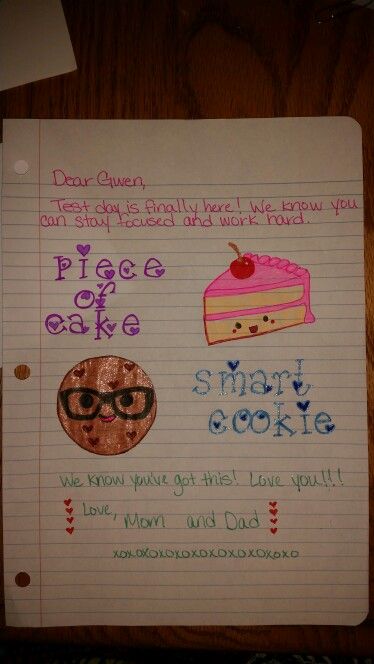 Dear Gwen,
Test day is finally here! We know you
can stay focused and work hard.
piece
of
cake
smart
cookie
We know you've got this! Love you!!!
Love, Mom and Dad
xoxoxoxoxoxoxoxoxoxoxo